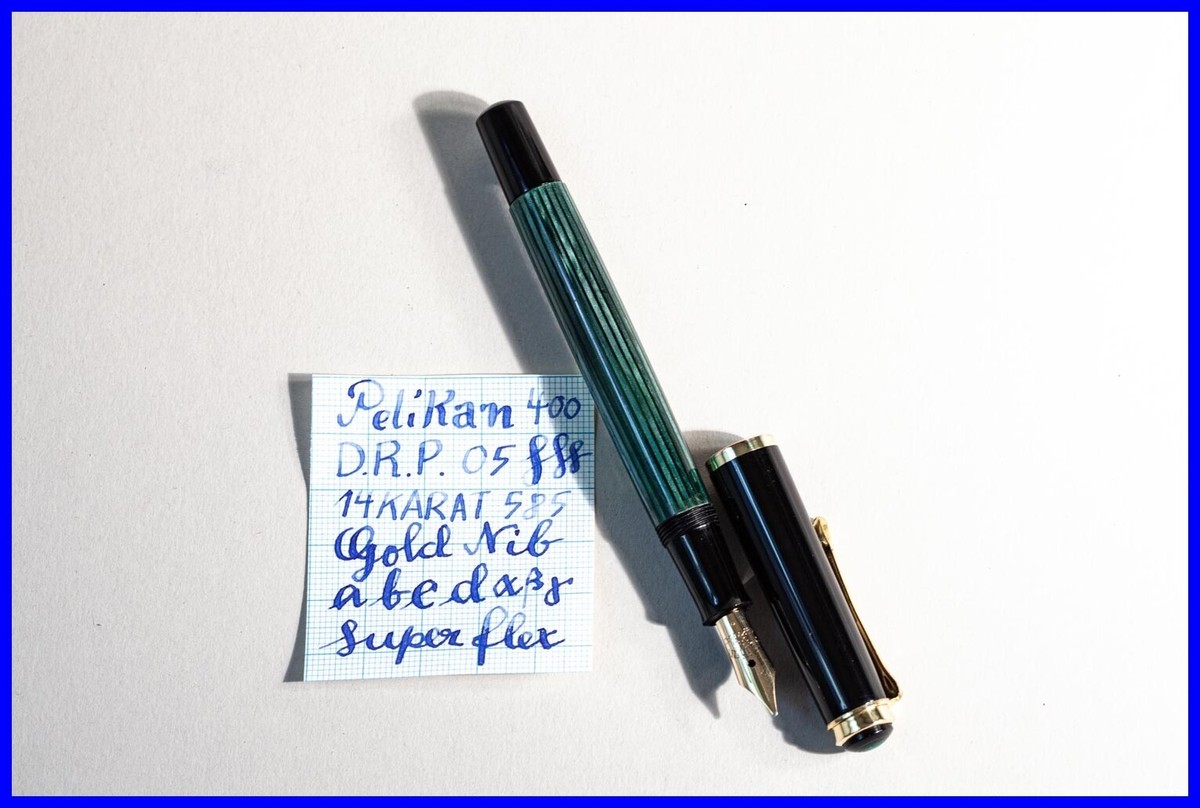 Pelikan 400
D.R.P. 05 fff
14 KARAT 585
Gold Nib
a b c d α β γ
super flex